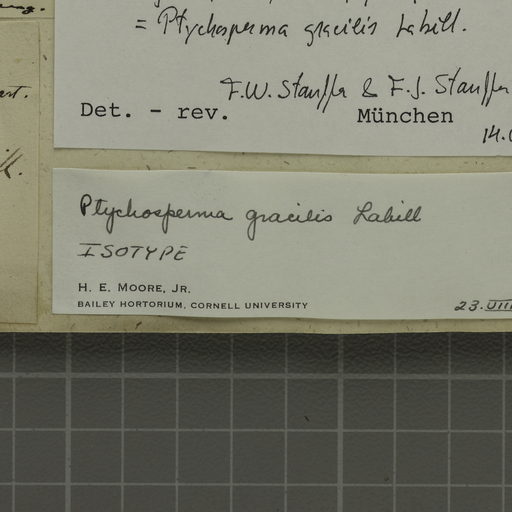 = Ptychosperma gracilis Labill.
F.W. Stauffer & F.J. Stauffer
Det. - rev. München
14.
Ptychosperma gracilis Labill
ISOTYPE
H. E. MOORE, JR.
BAILEY HORTORIUM, CORNELL UNIVERSITY
23.VIII